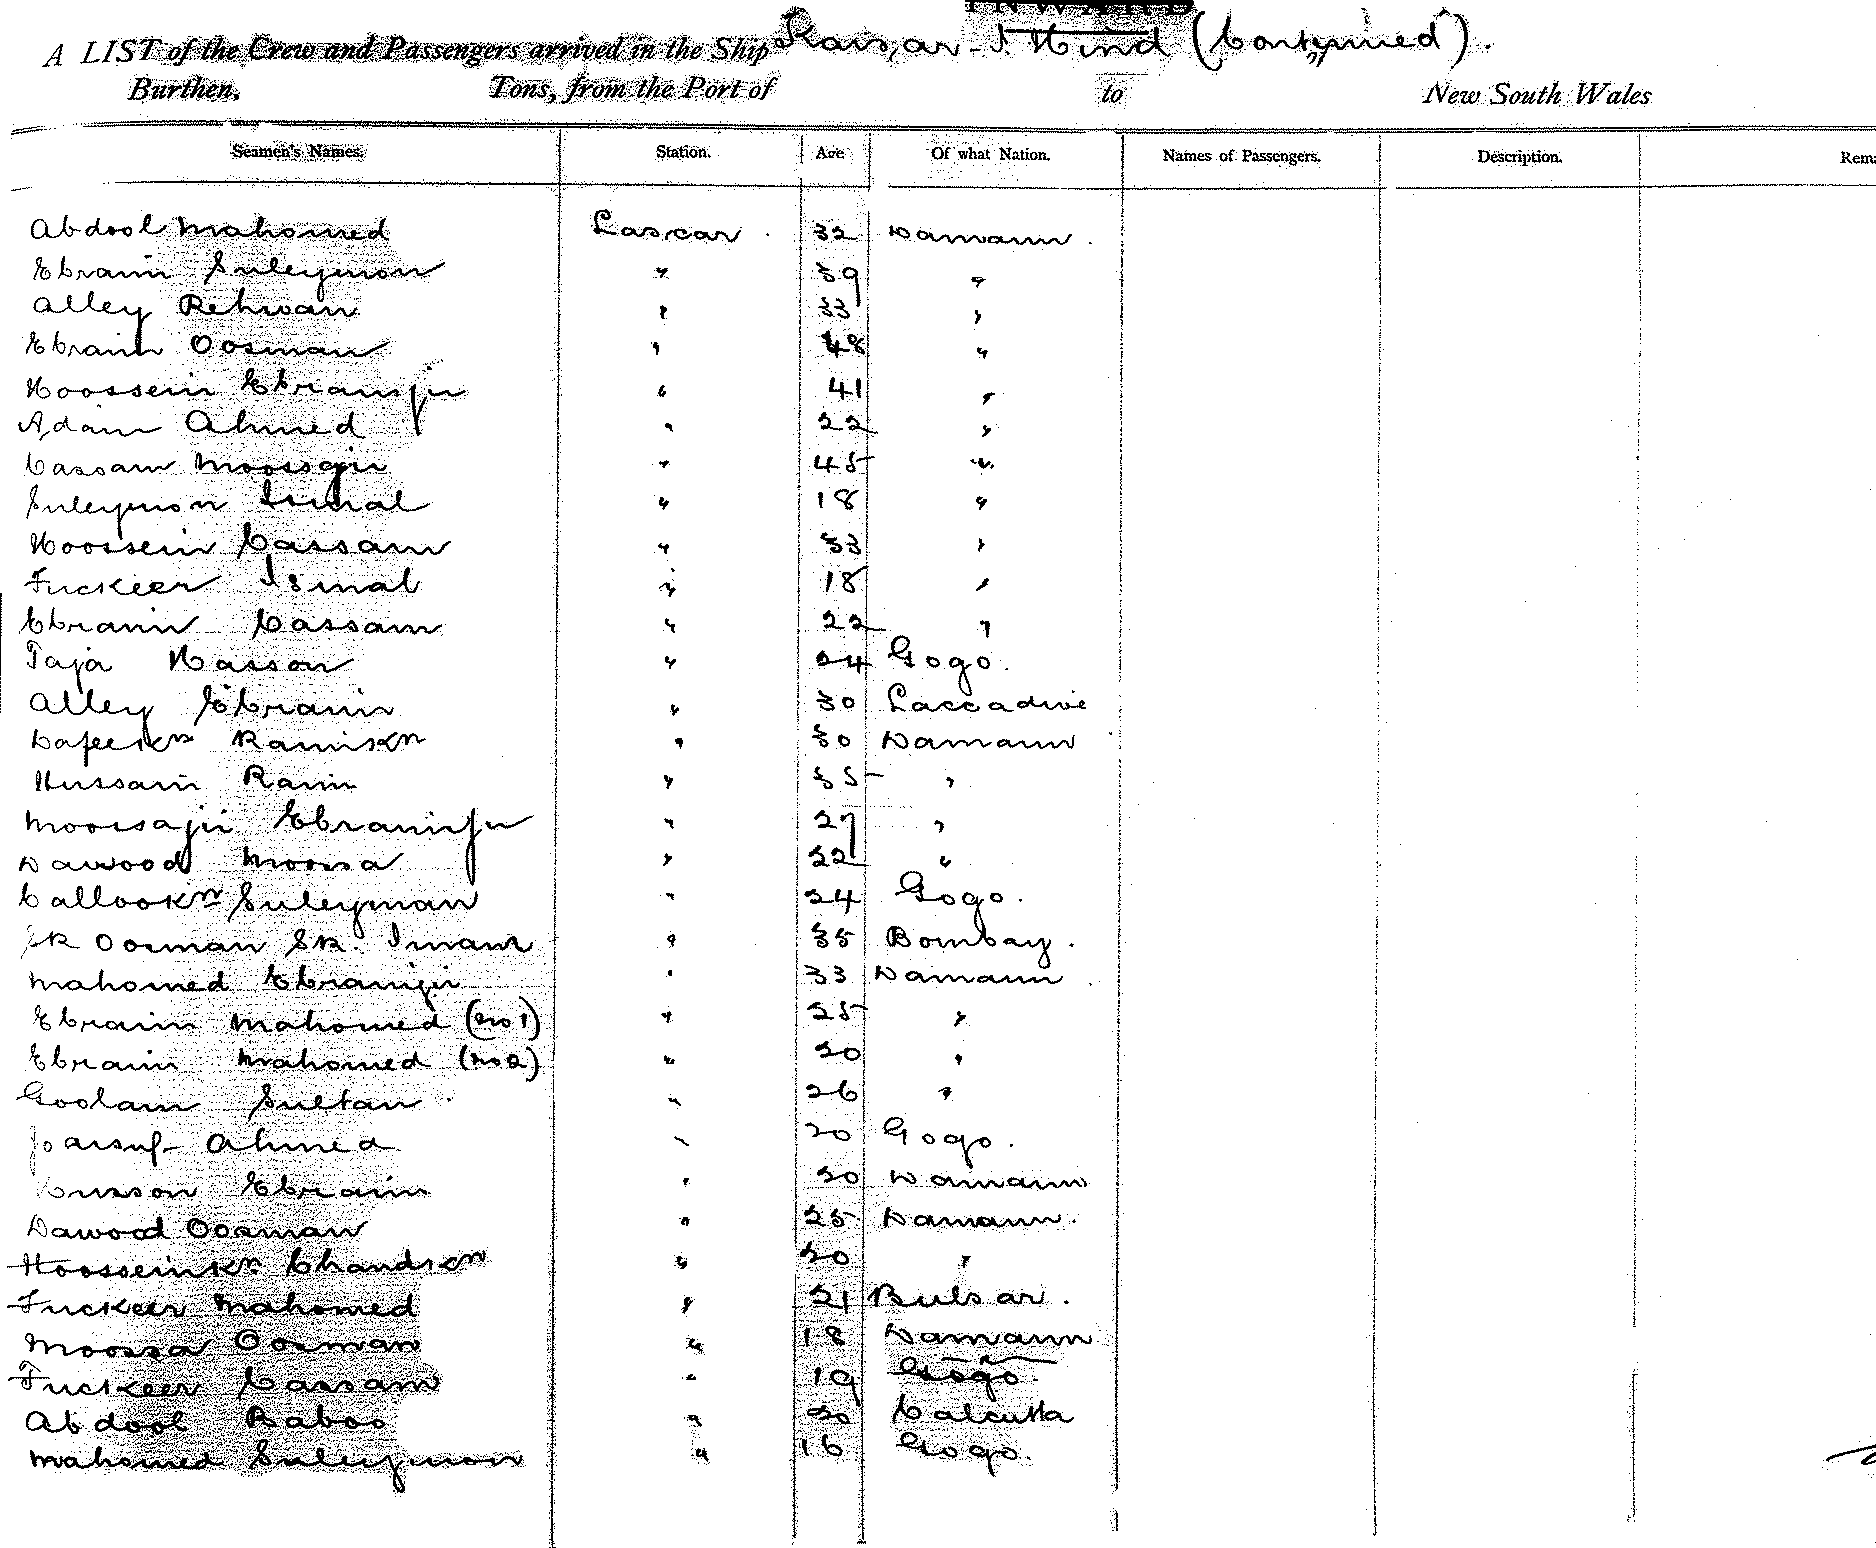 INWARD
A LIST of the Crew and Passengers arrived in the Ship Kaisar-I-Hind (Continued).
Burthen, Tons, from the Port of to New South Wales
Seamen's Names. Station. Age Of what Nation. Names of Passengers. Description.
Abdool Mahomed Lascar 32 Damaun.
Ebraim Suleymon " 39 "
Alley Rehman " 33 "
Ebraim Oosman " 48 "
Hoossein Ebramjee " 41 "
Adam Ahmed " 22 "
Cassam Moossajee " 45 "
Suleymon Ismal " 18 "
Hoossein Cassam " 33 "
Fuckeer Ismal " 18 "
Ebraim Cassam " 22 "
Taja Hasson " 24 Gogo.
Alley Ebraim " 30 Laccadive
Ramiskn " 30 Damaun
Hussain Ranu " 35 "
Moossaji Ebramjee " 27 "
Dawood Moosa " 22 "
Callookn Suleyman " 24 Gogo.
Sk Oosman Sk. Imam " 35 Bombay.
Mahomed Ebramjee " 33 Damaun
Ebraim Mahomed (No 1) " 25 "
Ebraim Mahomed (No 2) " 20 "
Goolam Sultan " 26 "
Ahmed " 20 Gogo.
Ebraim " 30 Damaun
Dawood Oosman " 25 Damaun.
Hoosseinkn Chandkn " 20 "
Fuckeer Mahomed " 21 Bulsar.
Moossa Oosman " 18 Damaun
Fuckeer Cassam " 19 Gogo.
Abdool Baboo " 30 Calcutta
Mahomed Suleymon " 16 Gogo.